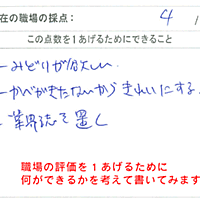 在の職場の採点: 4 /
この点数を1あげるためにできること
-みどりがほしい
-かべがきたないからきれいにする
-業界誌を置く
職場の評価を1あげるために
何ができるかを考えて書いてみます